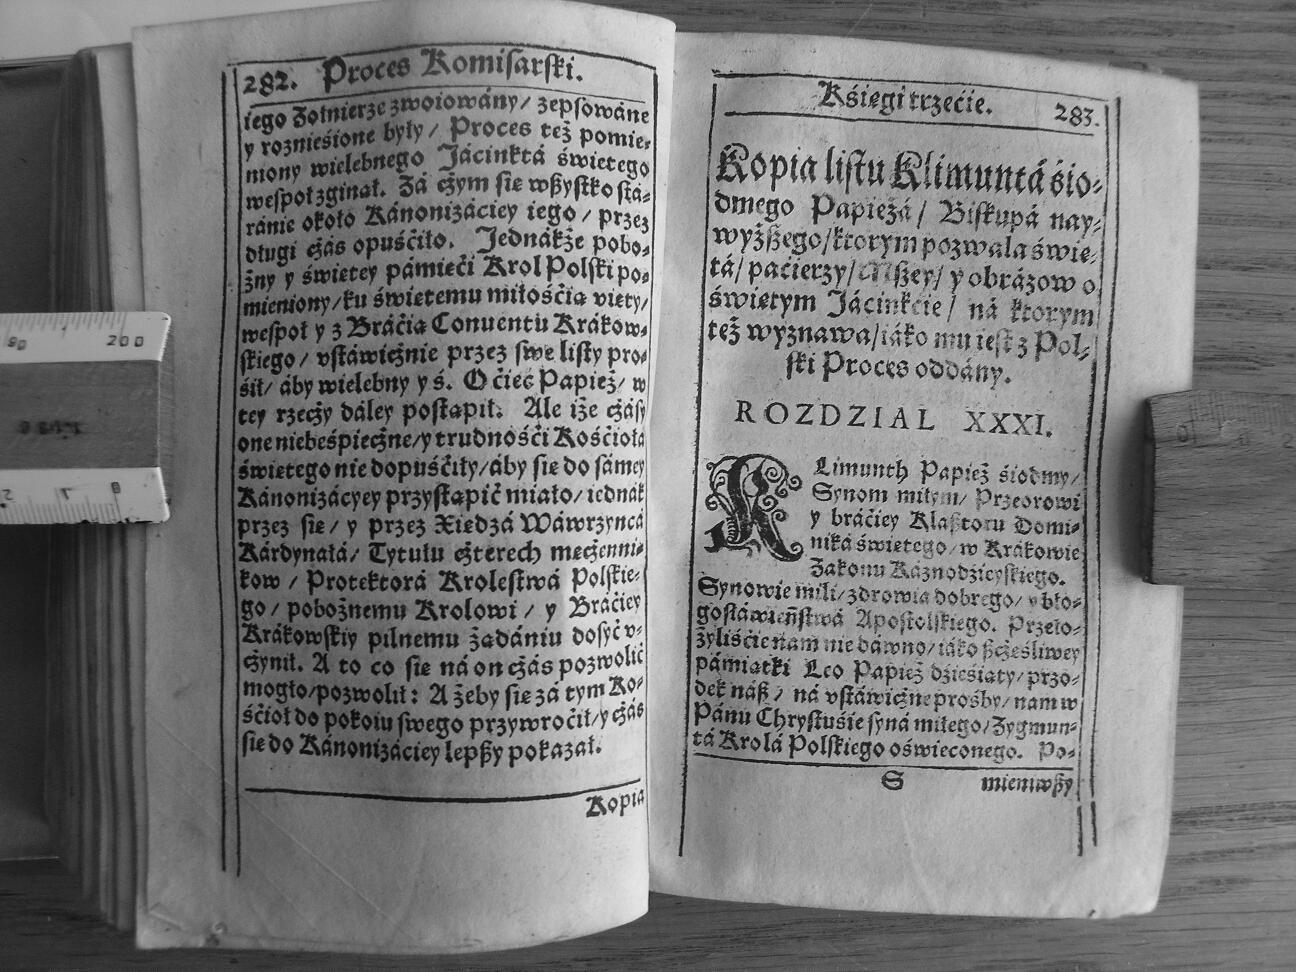 282. Proces Komisarski.
iego Żołnierze zwoiowány/ zepsowáne
y roznieśione były/ Proces też pomie-
niony wielebnego Jácinktá świetego
wespoł zginął. Zá czym sie wszystko stá-
ránie około Kánonizáciey iego/ przez
długi czás opuśćiło. Jednákże pobo-
żny y świetey pámieći Krol Polski po-
mieniony/ ku świetemu miłośćią viety/
wespoł y z Bráćia Conuentu Krákow-
skiego/ vstáwicżnie przez swe listy pro-
śił/ áby wielebny y ś. Oćiec Papież/ w
tey rzecży dáley postąpił. Ale iże czásy
one niebeśpiecżne/ y trudnośći Kośćioła
świetego nie dopuśćiły/ áby sie do sámey
Kánonizácyey przystąpić miáło/ iednák
przez sie/ y przez Xiedzá Wáwrzyncá
Kárdynałá/ Tytułu cżterech mecżenni-
kow/ Protektorá Krolestwá Polskie-
go/ pobożnemu Krolowi/ y Bráćiey
Krákowskiy pilnemu żądániu dosyć v-
cżynił. A to co sie ná on cżás pozwolić
mogło/ pozwolił: A żeby sie zá tym Ko-
śćioł do pokoiu swego przywroćił/ y cżás
sie do Kánonizáciey lepszy pokazał.
Kopia
Kśięgi trzećie. 283.
Kopia listu Klimuntá śio-
dmego Papieżá/ Biskupá nay-
wyższego/ ktorym pozwala świe-
tá/ paćierzy/ Mszey/ y obrázow o
świętym Jácinkćie/ ná ktorym
też wyznawa/ iáko mu iest z Pol-
ski Proces oddány.
ROZDZIAL XXXI.
KLimunth Papież śiodmy/
Synom miłym/ Przeorowi
y bráćiey Klasztoru Domi-
niká świetego/ w Krákowie
Zakonu Káznodźieyskiego.
Synowie mili/ zdrowia dobrego/ y bło-
gosłáwieństwá Apostolskiego. Przeło-
żyliśćie nam nie dawno/ iáko szcżęśliwey
pámiątki Leo Papież dźieśiąty/ przo-
dek náß/ ná vstáwicżne prośby/ nam w
Pánu Chrystuśie syná miłego/ Zygmun-
tá Krolá Polskiego oświeconego. Po-
S mieniwszy